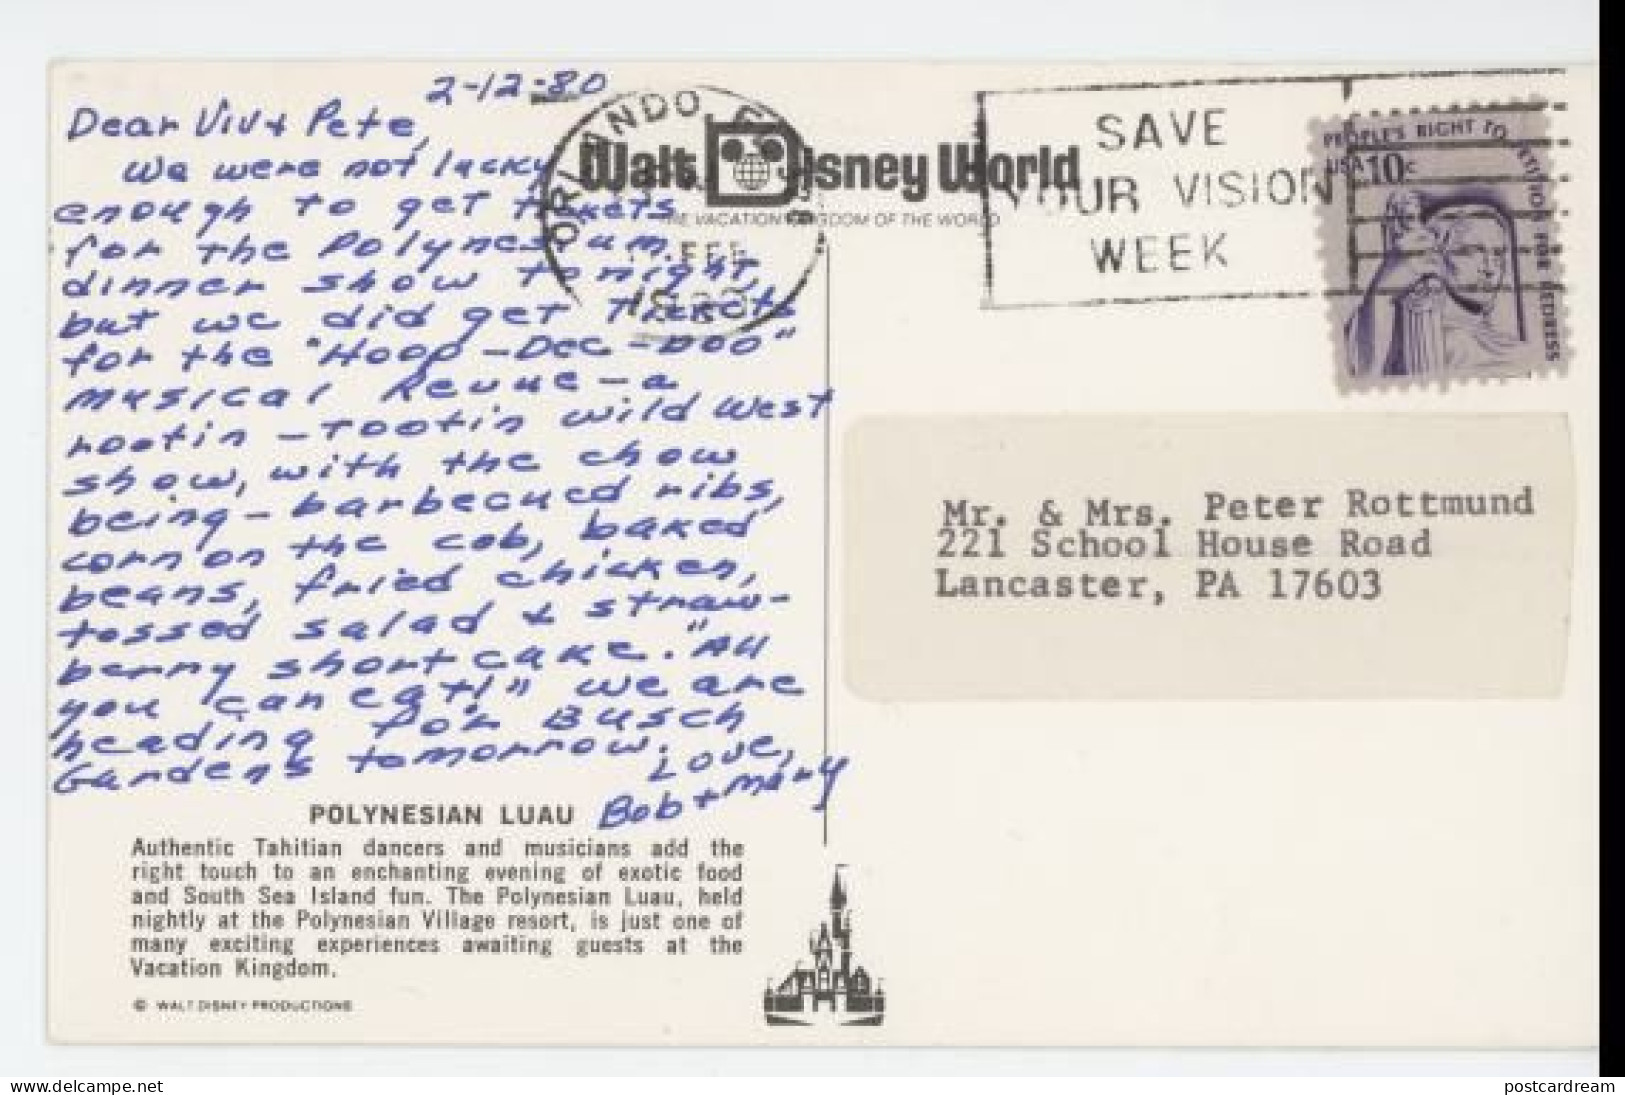 2-12-80
Dear Viv + Pete,
We were not lucky
enough to get tickets
for the Polynesian
dinner show tonight,
but we did get tickets
for the "Hoop-Dee-Doo"
musical Revue - a
rootin-tootin wild west
show, with the chow
being - barbecued ribs,
corn on the cob, baked
beans, fried chicken,
tossed salad + straw-
berry shortcake. "All
you can eat!" We are
heading for Busch
Gardens tomorrow.
Love,
Bob + Mary
POLYNESIAN LUAU
Authentic Tahitian dancers and musicians add the
right touch to an enchanting evening of exotic food
and South Sea Island fun. The Polynesian Luau, held
nightly at the Polynesian Village resort, is just one of
many exciting experiences awaiting guests at the
Vacation Kingdom.
© WALT DISNEY PRODUCTIONS
Walt Disney World
THE VACATION KINGDOM OF THE WORLD
ORLANDO
FEB
1980
SAVE
YOUR VISION
WEEK
PEOPLE'S RIGHT TO PETITION FOR REDRESS
USA 10c
Mr. & Mrs. Peter Rottmund
221 School House Road
Lancaster, PA 17603
www.delcampe.net
postcardream